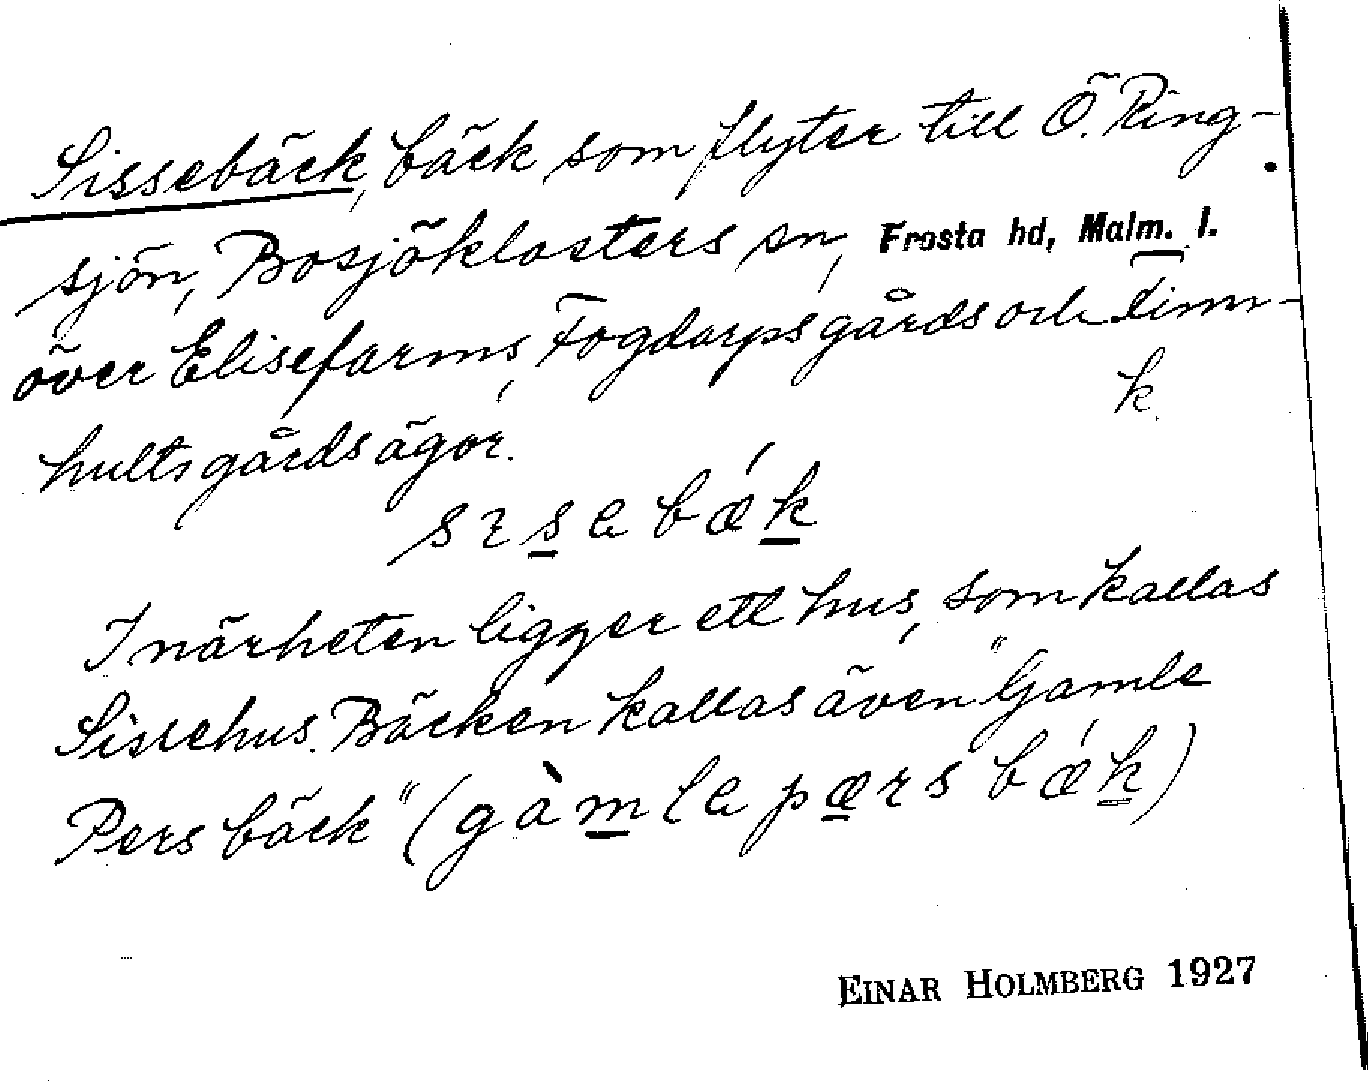 Sissebäck, bäck som flyter till Ö. Ring-
sjön, Bosjöklosters sn, Frosta hd, Malm. l.
över Elisefarms, Fogdarps gårds och Linn-
k
hults gårds ägor.
sɪsəbǽk
I närheten ligger ett hus, som kallas
Sissehus. Bäcken kallas även "Gamle
Pers bäck" (gàmləpærsbǽk)
EINAR HOLMBERG 1927